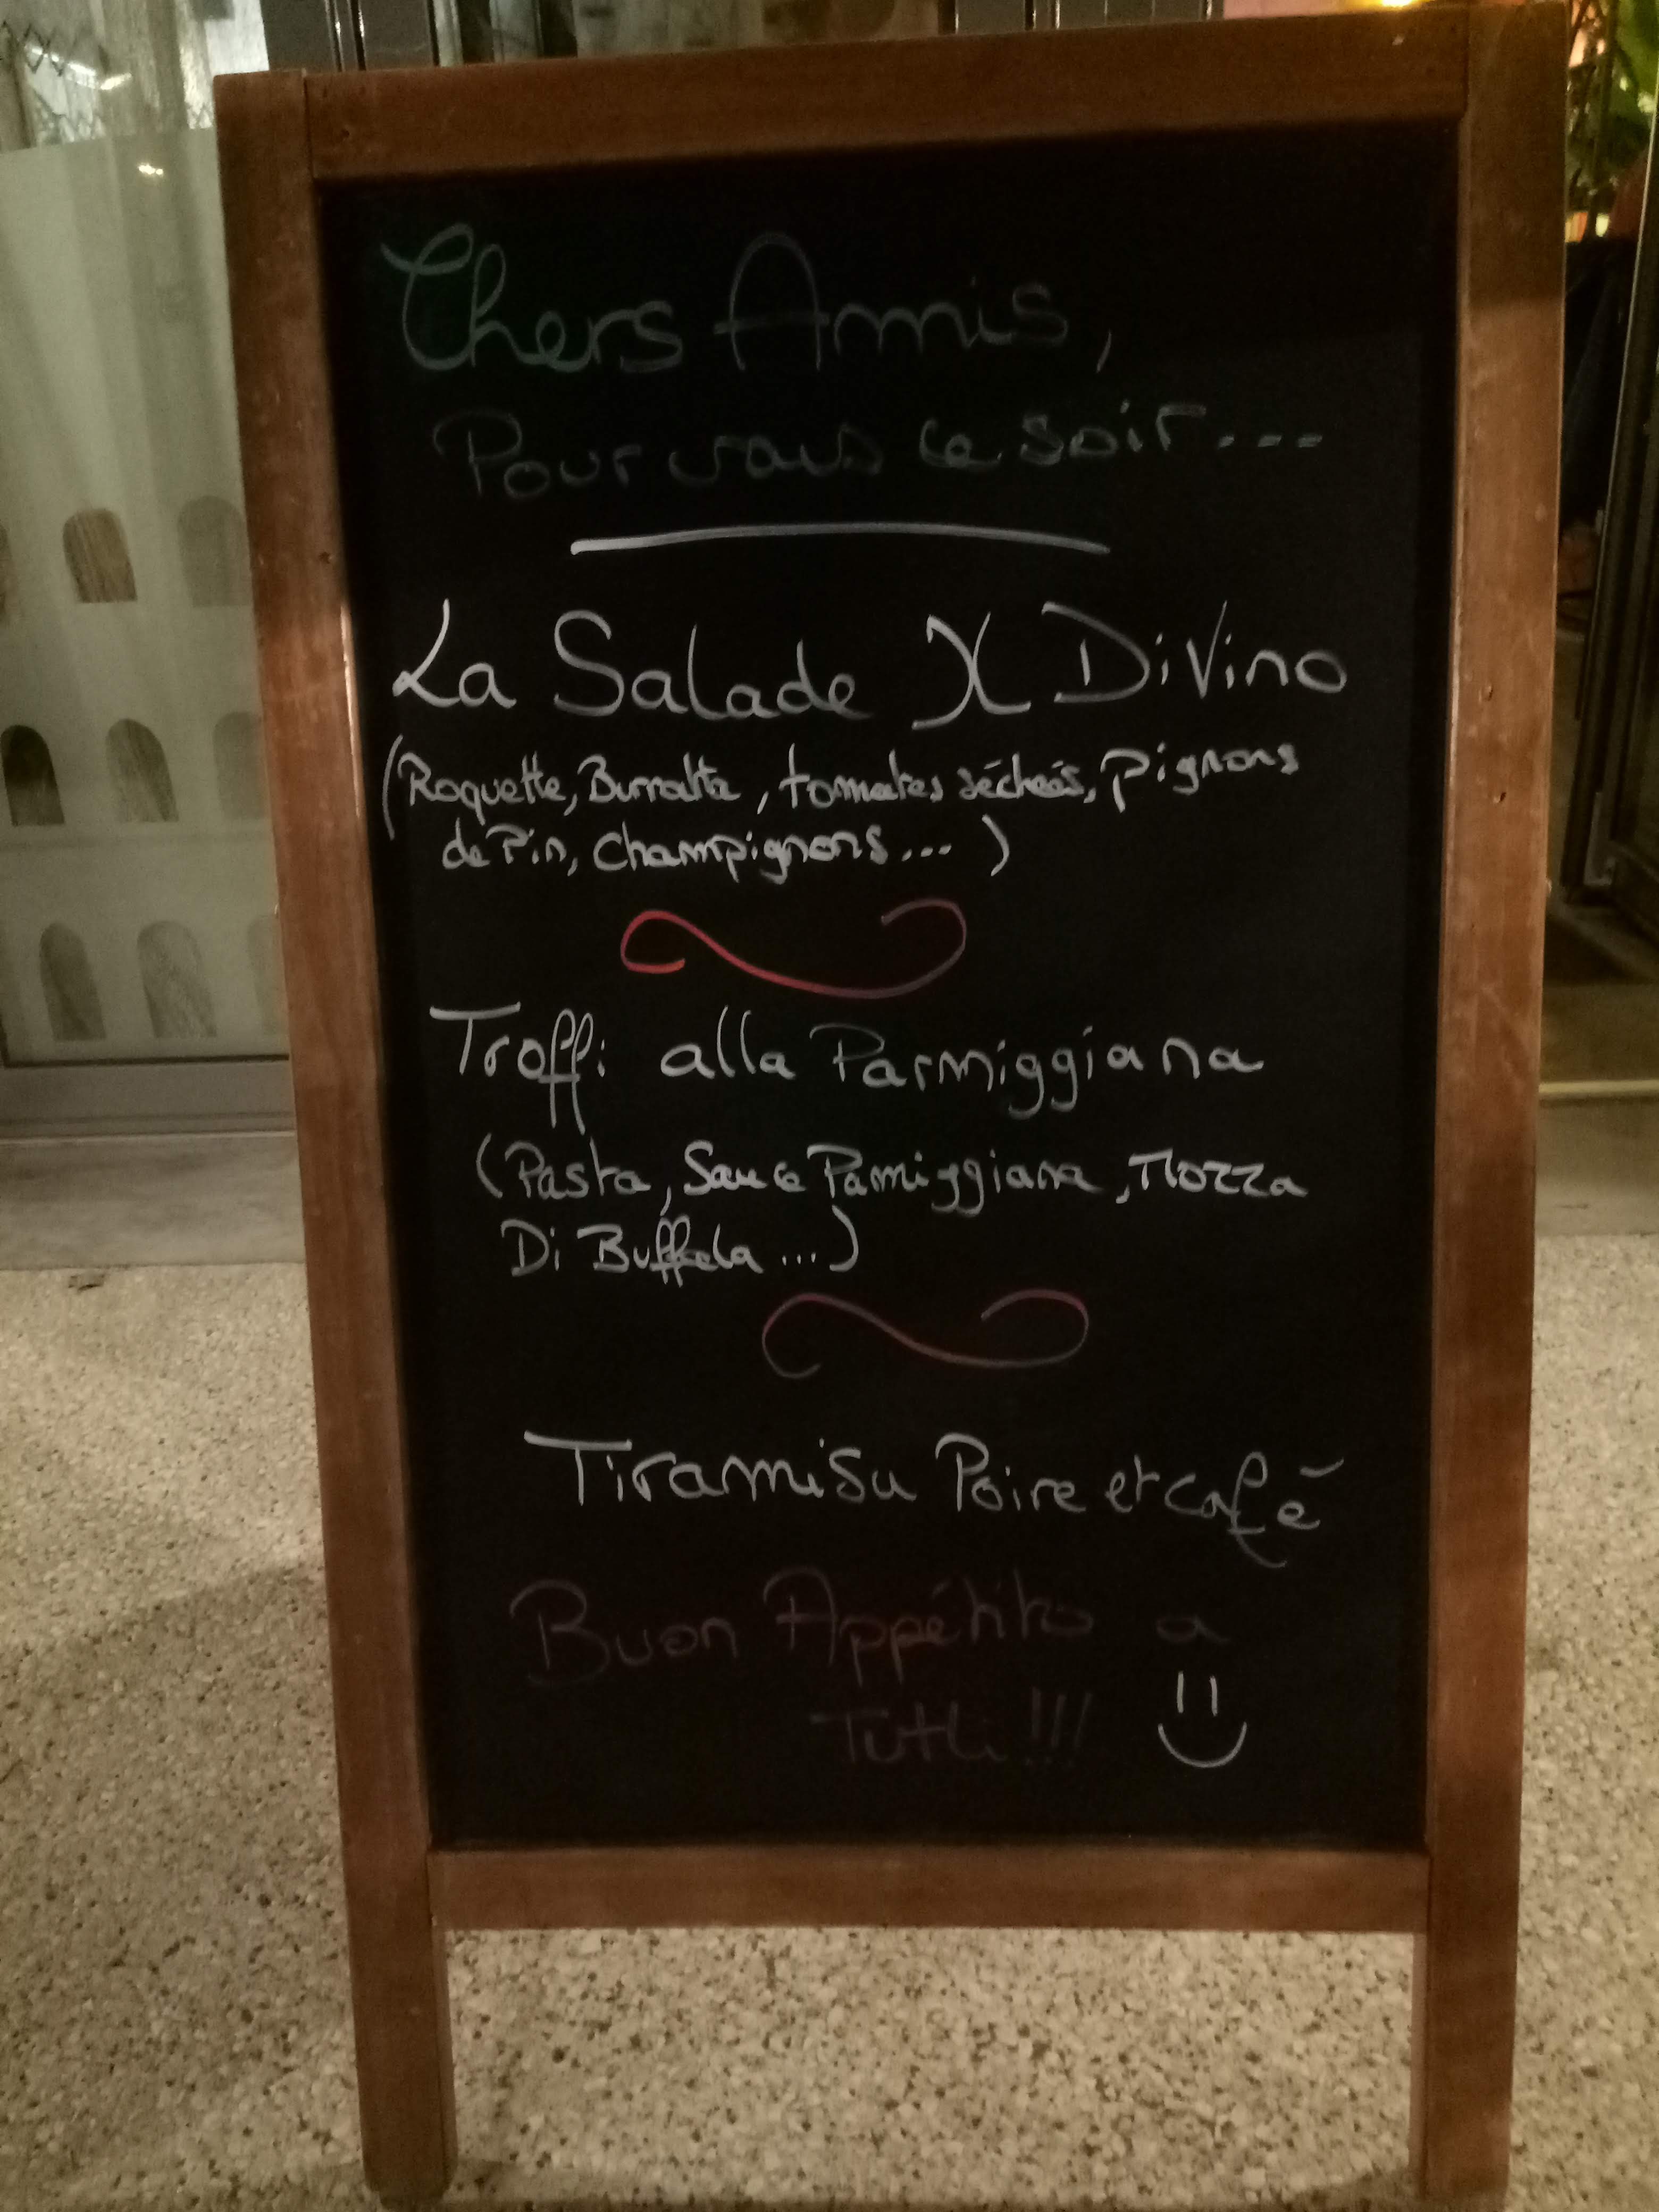 Chers Amis,
Pour vous ce soir...
La Salade X Divino
(Roquette, Burratta, tomates séchées, Pignons
de Pin, Champignons...)
Troffi alla Parmiggiana
(Pasta, Sauce Parmiggiana, Mozza
Di Buffala...)
Tiramisu Poire et café
Buon Appétito a
Tutti !!!